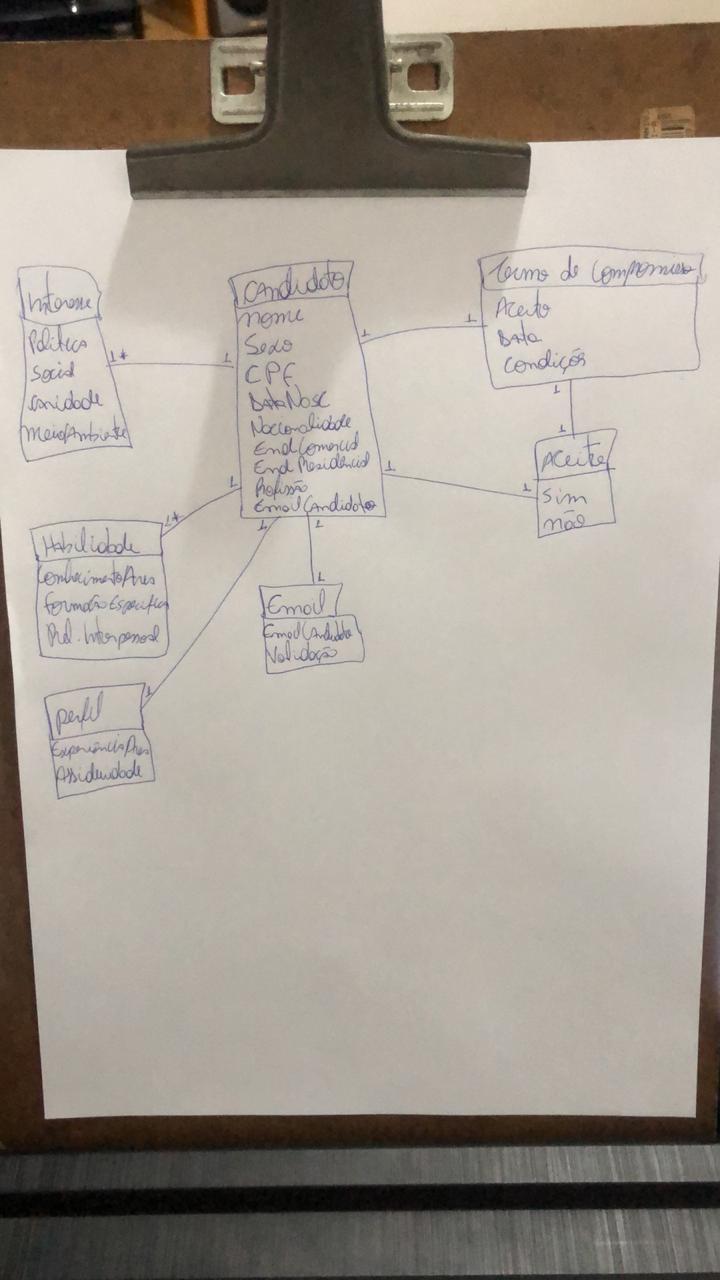 Interesse
Politica
Social
Caridade
MeioAmbiente
1*
1
Candidato
nome
Sexo
CPF
DataNasc
Nacionalidade
EndComercial
End Residêncial
Profissão
EmailCandidato
1
1
Termo de Compromisso
Aceito
Data
Condições
1
1
Aceite
Sim
não
1
1
1
1*
Habilidade
ConhecimentoÁrea
FormaçãoEspecifica
Rel. Interpessoal
1
1
Perfil
ExperiênciaÁrea
Assiduidade
1
1
Email
EmailCandidato
Validação